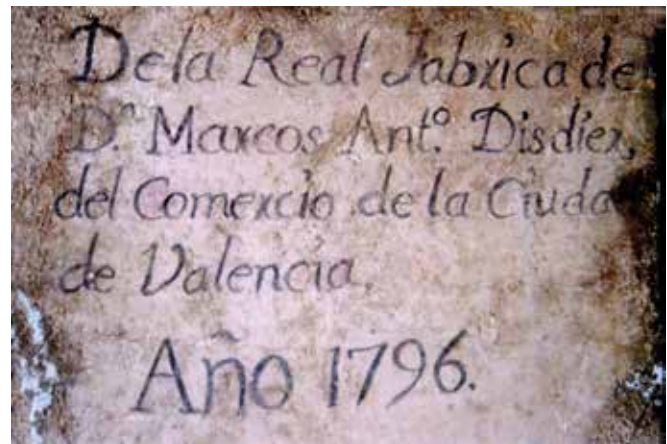 Dela Real Fabrica de
D.ⁿ Marcos Ant.º Disdier,
del Comercio de la Ciuda
de Valencia.
Año 1796.